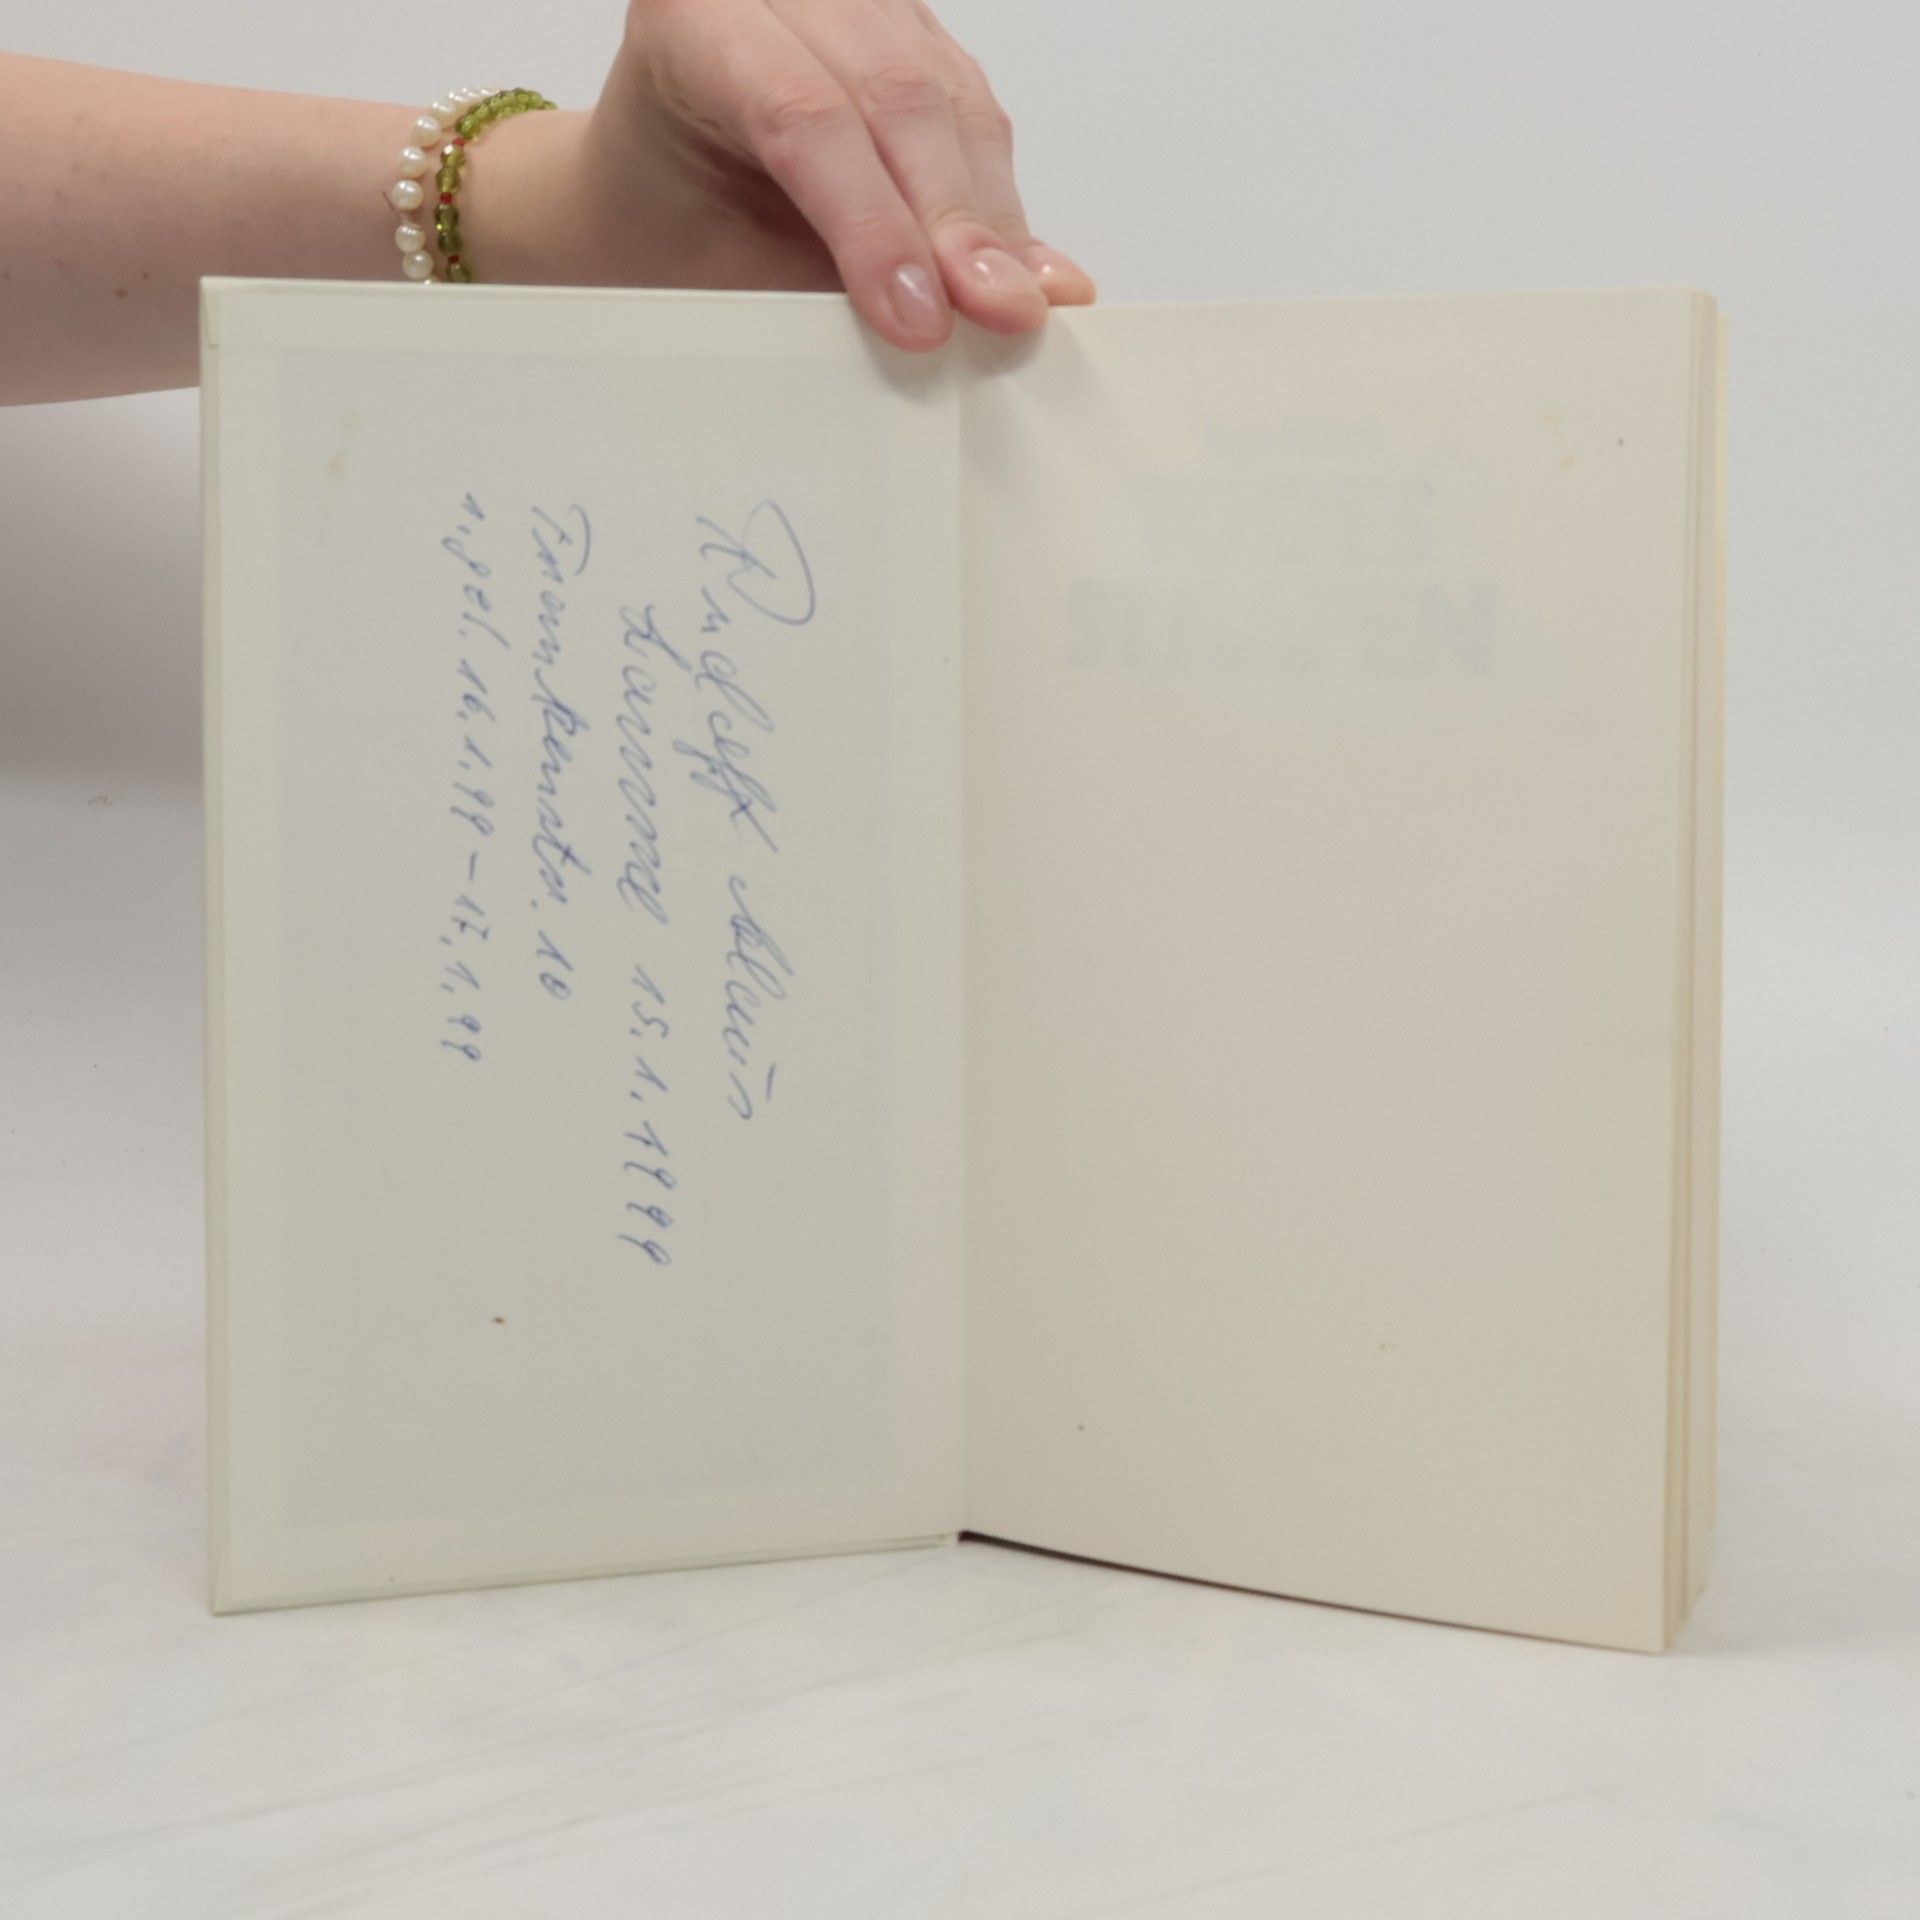 Rudolf Alwin
15.1.1999
Frankenstr. 10
1. gel. 16.1.99 – 17.1.99